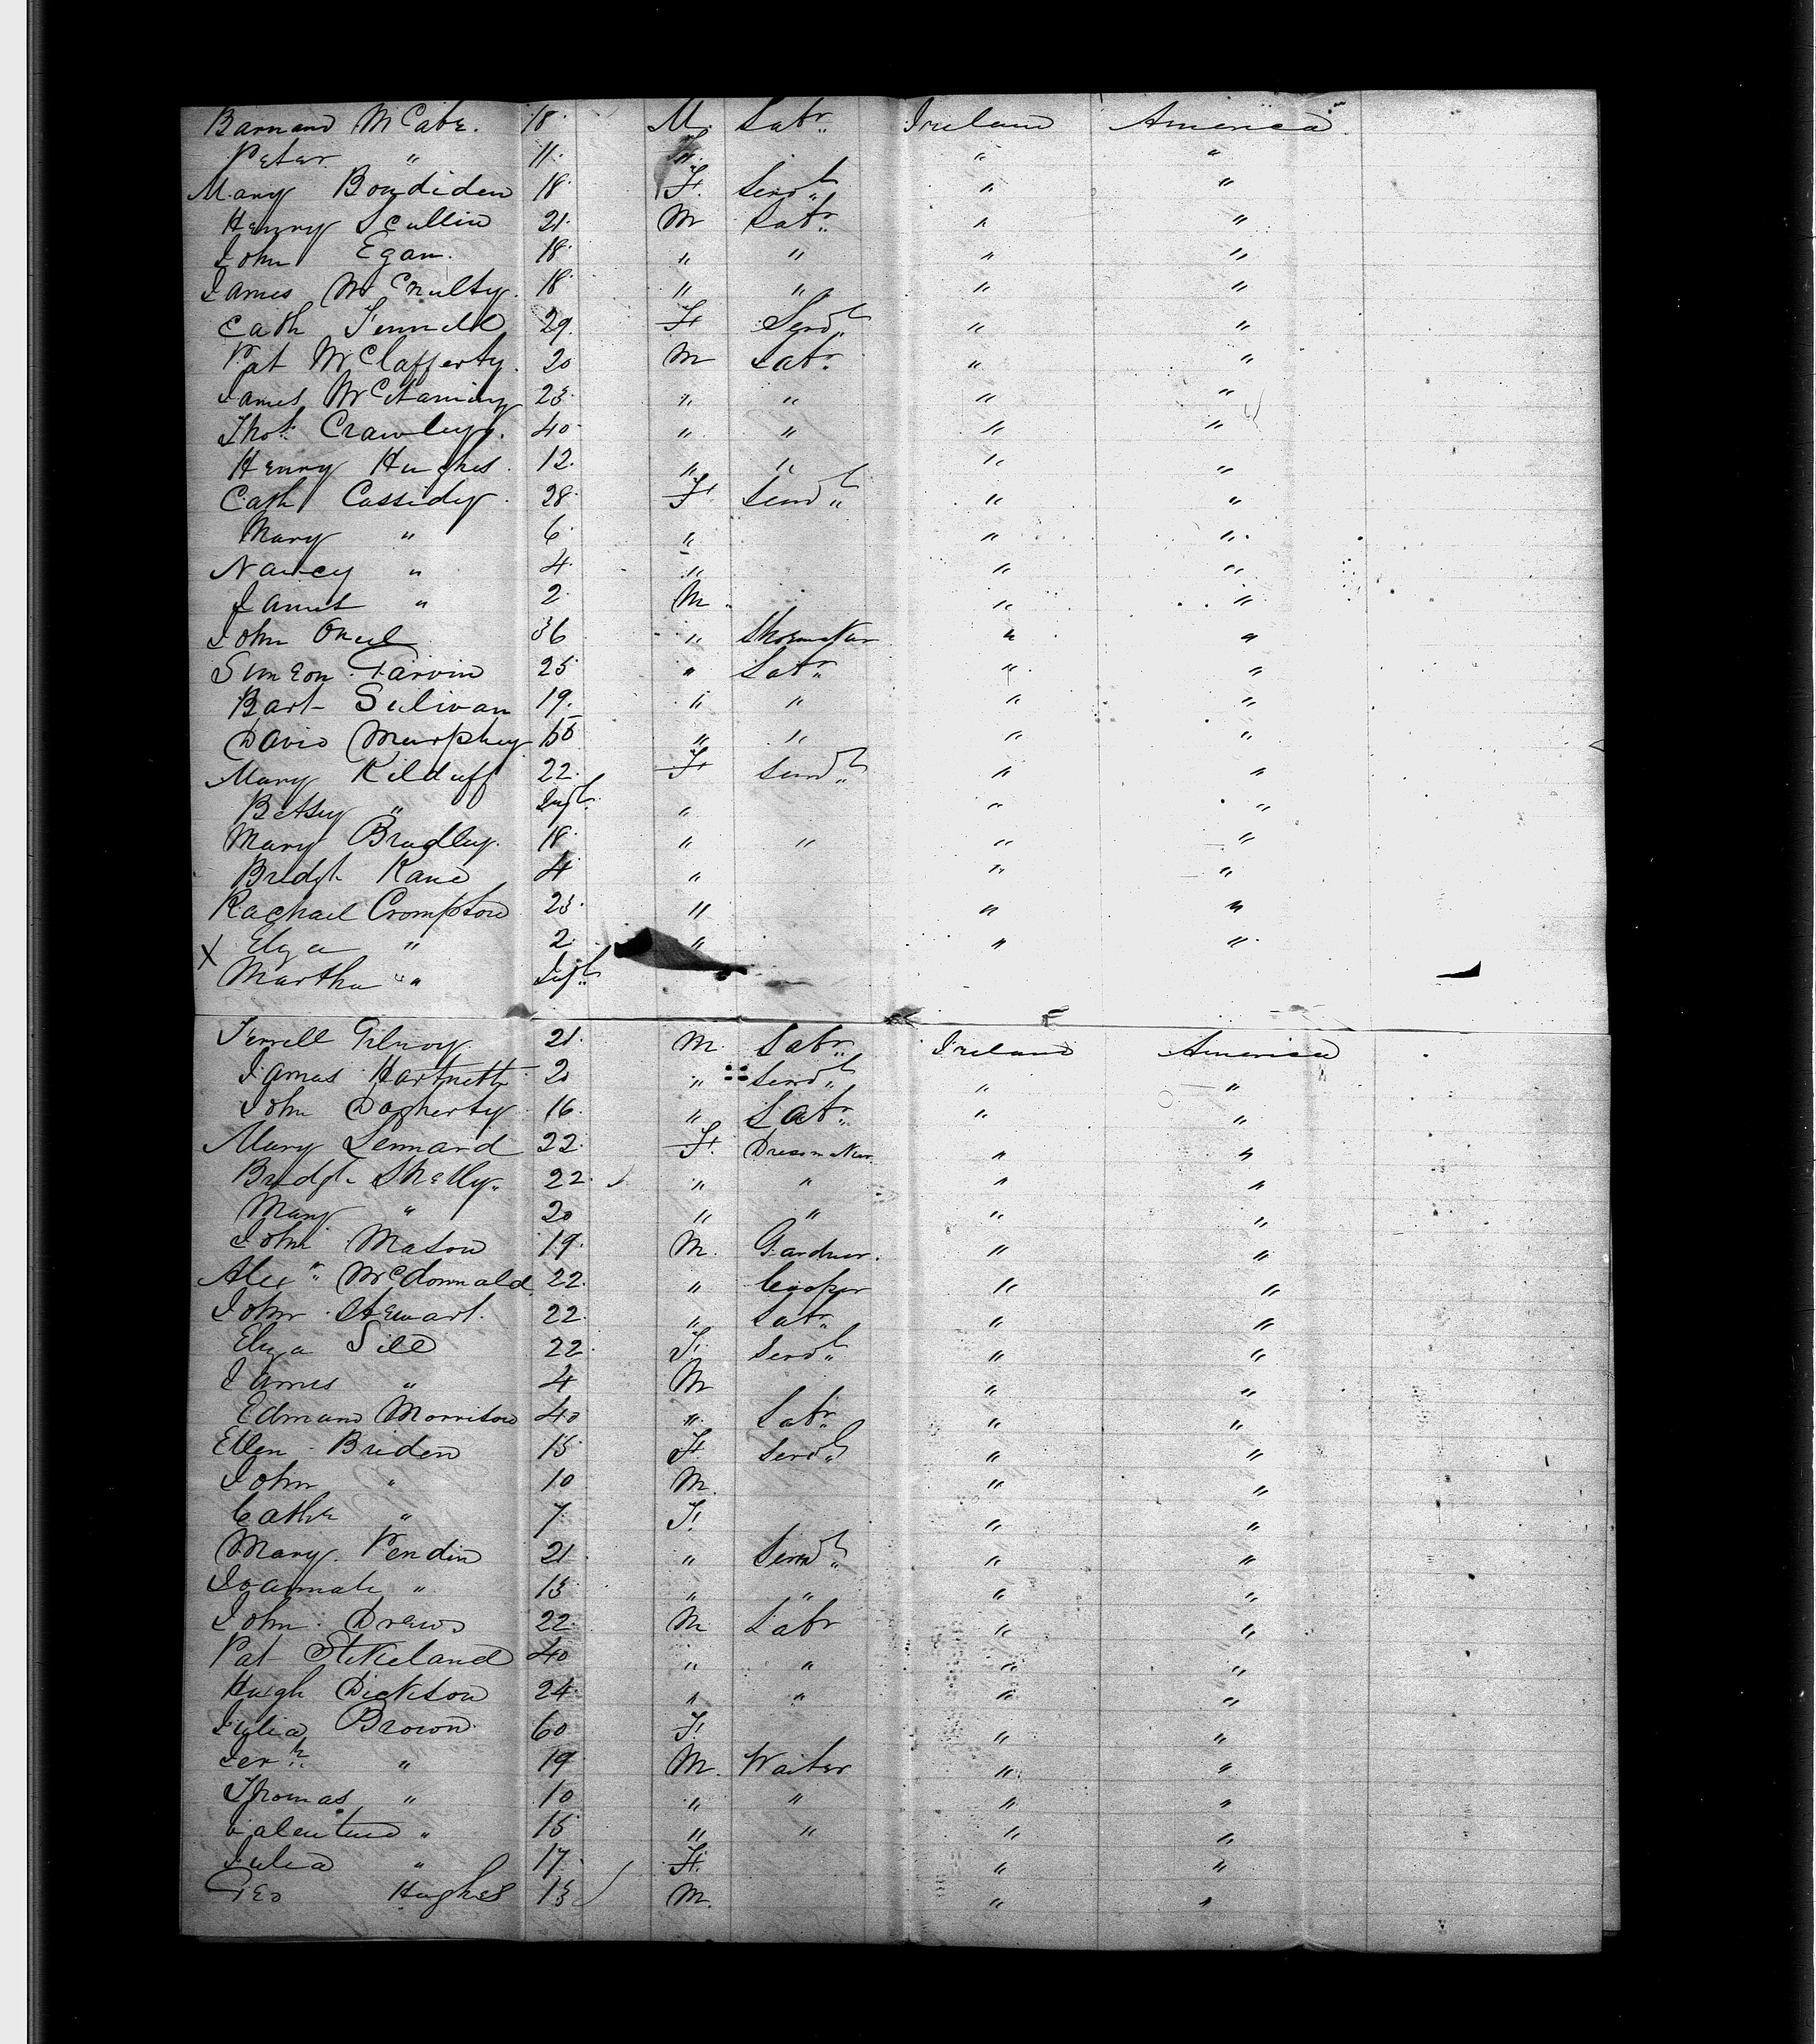 Barnard McCabe. 18. M. Labr. Ireland America
Peter " 11. " " "
Mary 18. F. Servt. " "
Henry Scullin 21. M Labr. " "
John Egan. 18. " " " "
James McNulty. 18. " " " "
Cath Fennell 29. F Servt. " "
Pat McClafferty. 20 M Labr. " "
James 23. " " " "
Thos. Crawley. 40 " " " "
Henry Hughes. 12. " " " "
Cath Cassidy. 28. F Servt. " "
Mary " 6. " " "
Nancy " 4. " " "
James " 2. M. " "
John Oneil 36 " Shoemaker " "
Simeon Garvin 25 " Labr. " "
Bart Sulivan 19. " " " "
David Murphey " " " "
Mary Kilduff 22. F Servt. " "
Betsey " Inft. " " "
Mary Bradley. 18. " " " "
Bridgt. Kane 4 " " "
Rachael Crompton 23. " " "
X Elza " 2. " " "
Martha " Inft.
Ferrell Gilroy 21. M. Labr. Ireland America
James Hartnett 20 " Servt. " "
John Dogherty 16. " Labr. " "
Mary Lennard 22. F. Dressmaker. " "
Bridgt. Shelly. 22. " " " "
Mary " 20 " " " "
John Mason 19. M. Gardner. " "
Alexr. McDonnald 22. " Cooper " "
John Stewart. 22. " Labr. " "
Elza Sill 22. F. Servt. " "
James " 4 M " "
Edmand Morrison 40 " Labr. " "
Ellen Briden 15 F. Servt. " "
John " 10 M. " "
Cathe " 7. F. " "
Mary Pendin 21 " Servt. " "
Joannah " 13 " " " "
John Drews 22. M Labr " "
Pat Stekeland 40 " " " "
Hugh Dickson 24. " " " "
Julia Brown. 60 F. " "
Jerh. " 19 M. Waiter " "
Thomas " 10 " " " "
Valentine " 15 " " " "
Julia " 17. F. " "
Geo Hughes 13 M. " "